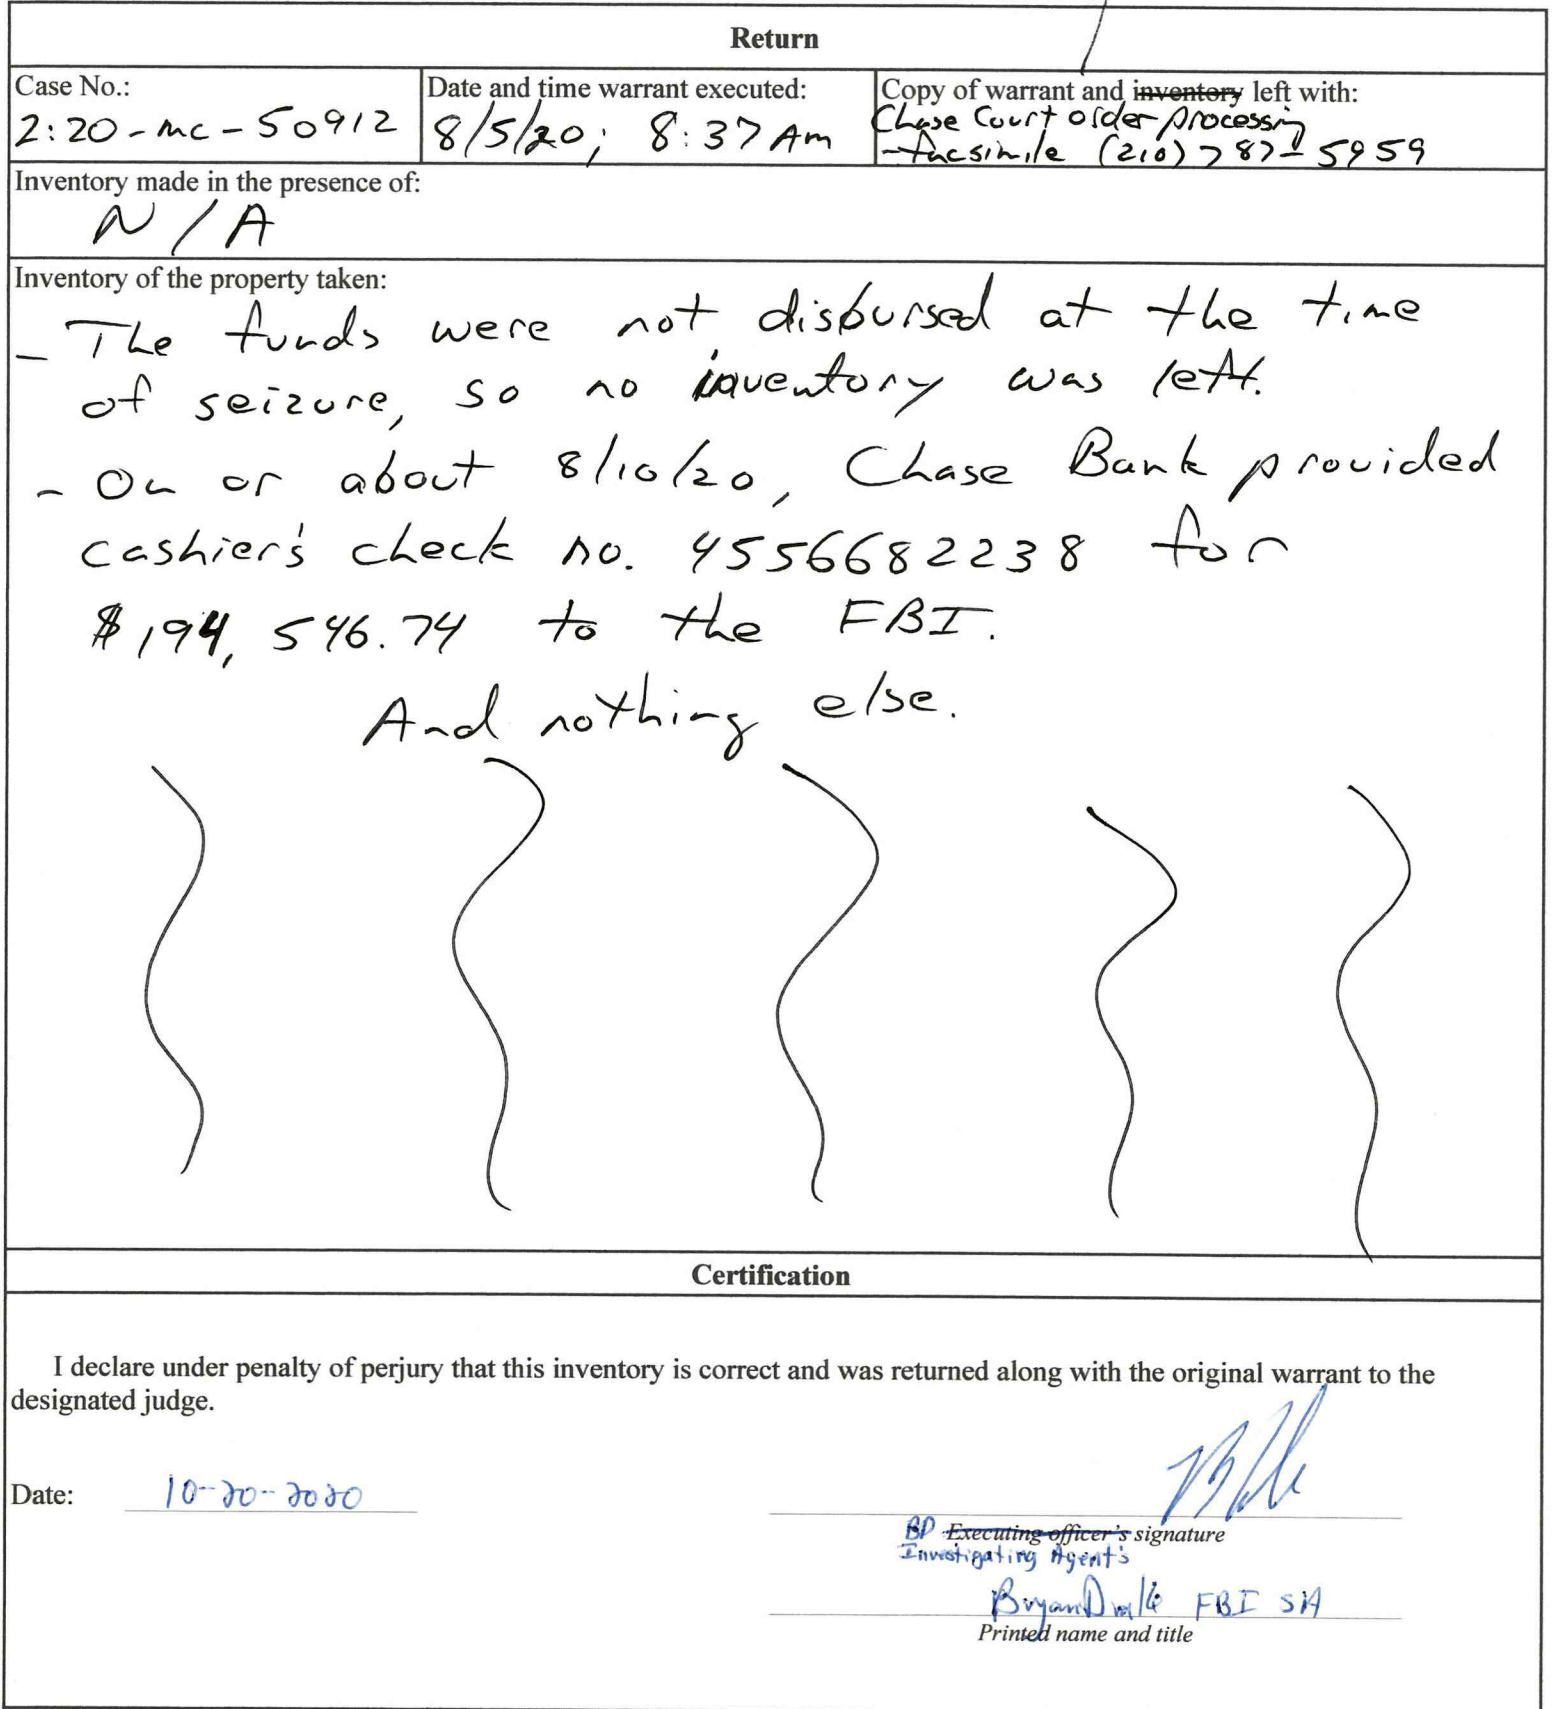 Return
Case No.:
2:20-mc-50912
Date and time warrant executed:
8/5/20; 8:37 Am
Copy of warrant and inventory left with:
Chase Court order processing
-facsimile (210) 787-5959
Inventory made in the presence of:
N/A
Inventory of the property taken:
- The funds were not disbursed at the time
of seizure, so no inventory was left.
- On or about 8/10/20, Chase Bank provided
cashier's check no. 4556682238 for
$194,546.74 to the FBI.
And nothing else.
Certification
I declare under penalty of perjury that this inventory is correct and was returned along with the original warrant to the
designated judge.
Date: 10-20-2020
BD Executing officer's signature
Investigating Agent's
Bryan FBI SA
Printed name and title